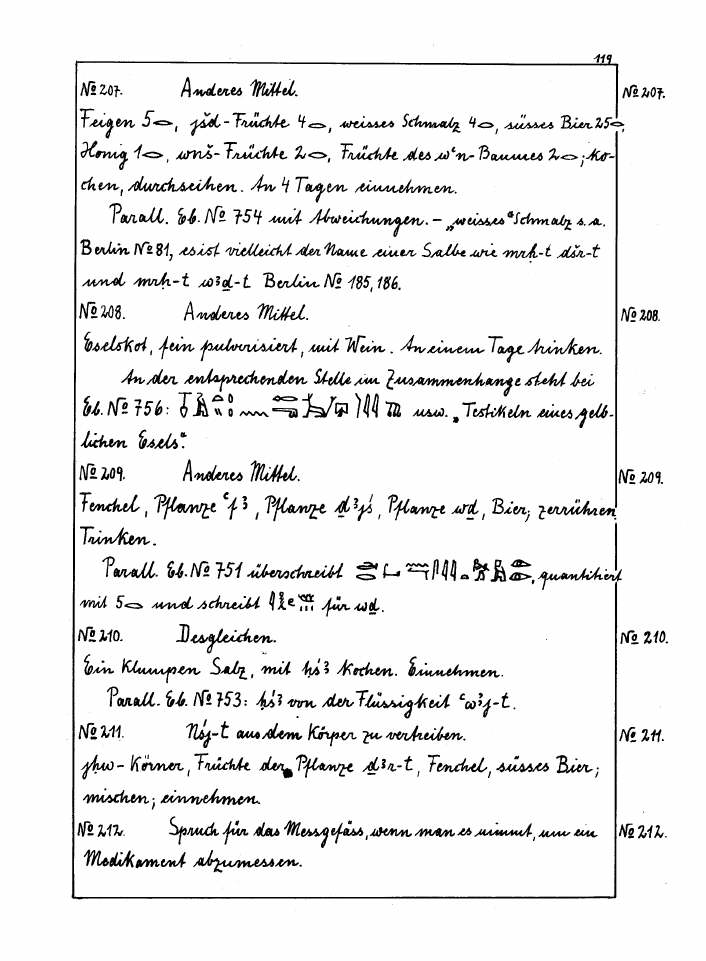 119
№ 207. Anderes Mittel. № 207.
Feigen 5𓂋, jšd-Früchte 4𓂋, weisses Schmalz 4𓂋, süsses Bier 25𓂋,
Honig 1𓂋, wnš-Früchte 2𓂋, Früchte des wꜥn-Baumes 2𓂋; ko-
chen, durchseihen. An 4 Tagen einnehmen.
Parall. Eb. № 754 mit Abweichungen. – „weisses“ Schmalz s. a.
Berlin № 81, es ist vielleicht der Name einer Salbe wie mrḥ-t dšr-t
und mrḥ-t wꜣḏ-t Berlin № 185, 186.
№ 208. Anderes Mittel. № 208.
Eselskot, fein pulverisiert, mit Wein. An einem Tage trinken.
An der entsprechenden Stelle im Zusammenhange steht bei
Eb. № 756: usw. „Testikeln eines gelb-
lichen Esels“.
№ 209. Anderes Mittel. № 209.
Fenchel, Pflanze ꜥfꜣ, Pflanze ḏꜣjś, Pflanze wḏ, Bier; zerrühren.
Trinken.
Parall. Eb. № 751 überschreibt , quantifiert
mit 5𓂋 und schreibt für wḏ.
№ 210. Desgleichen. № 210.
Ein Klumpen Salz, mit ḥśꜣ kochen. Einnehmen.
Parall. Eb. № 753: ḥśꜣ von der Flüssigkeit ꜥwꜣj-t.
№ 211. Nśj-t aus dem Körper zu vertreiben. № 211.
jhw-Körner, Früchte der Pflanze ḏꜣr-t, Fenchel, süsses Bier;
mischen; einnehmen.
№ 212. Spruch für das Messgefäss, wenn man es nimmt, um ein № 212.
Medikament abzumessen.